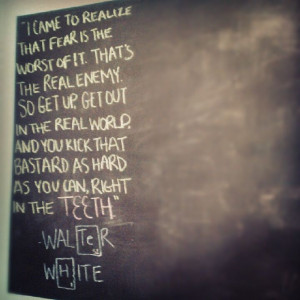 "I CAME TO REALIZE
THAT FEAR IS THE
WORST OF IT. THAT'S
THE REAL ENEMY.
SO GET UP, GET OUT
IN THE REAL WORLD.
AND YOU KICK THAT
BASTARD AS HARD
AS YOU CAN, RIGHT
IN THE TEETH"
-WALTeR
WHITE